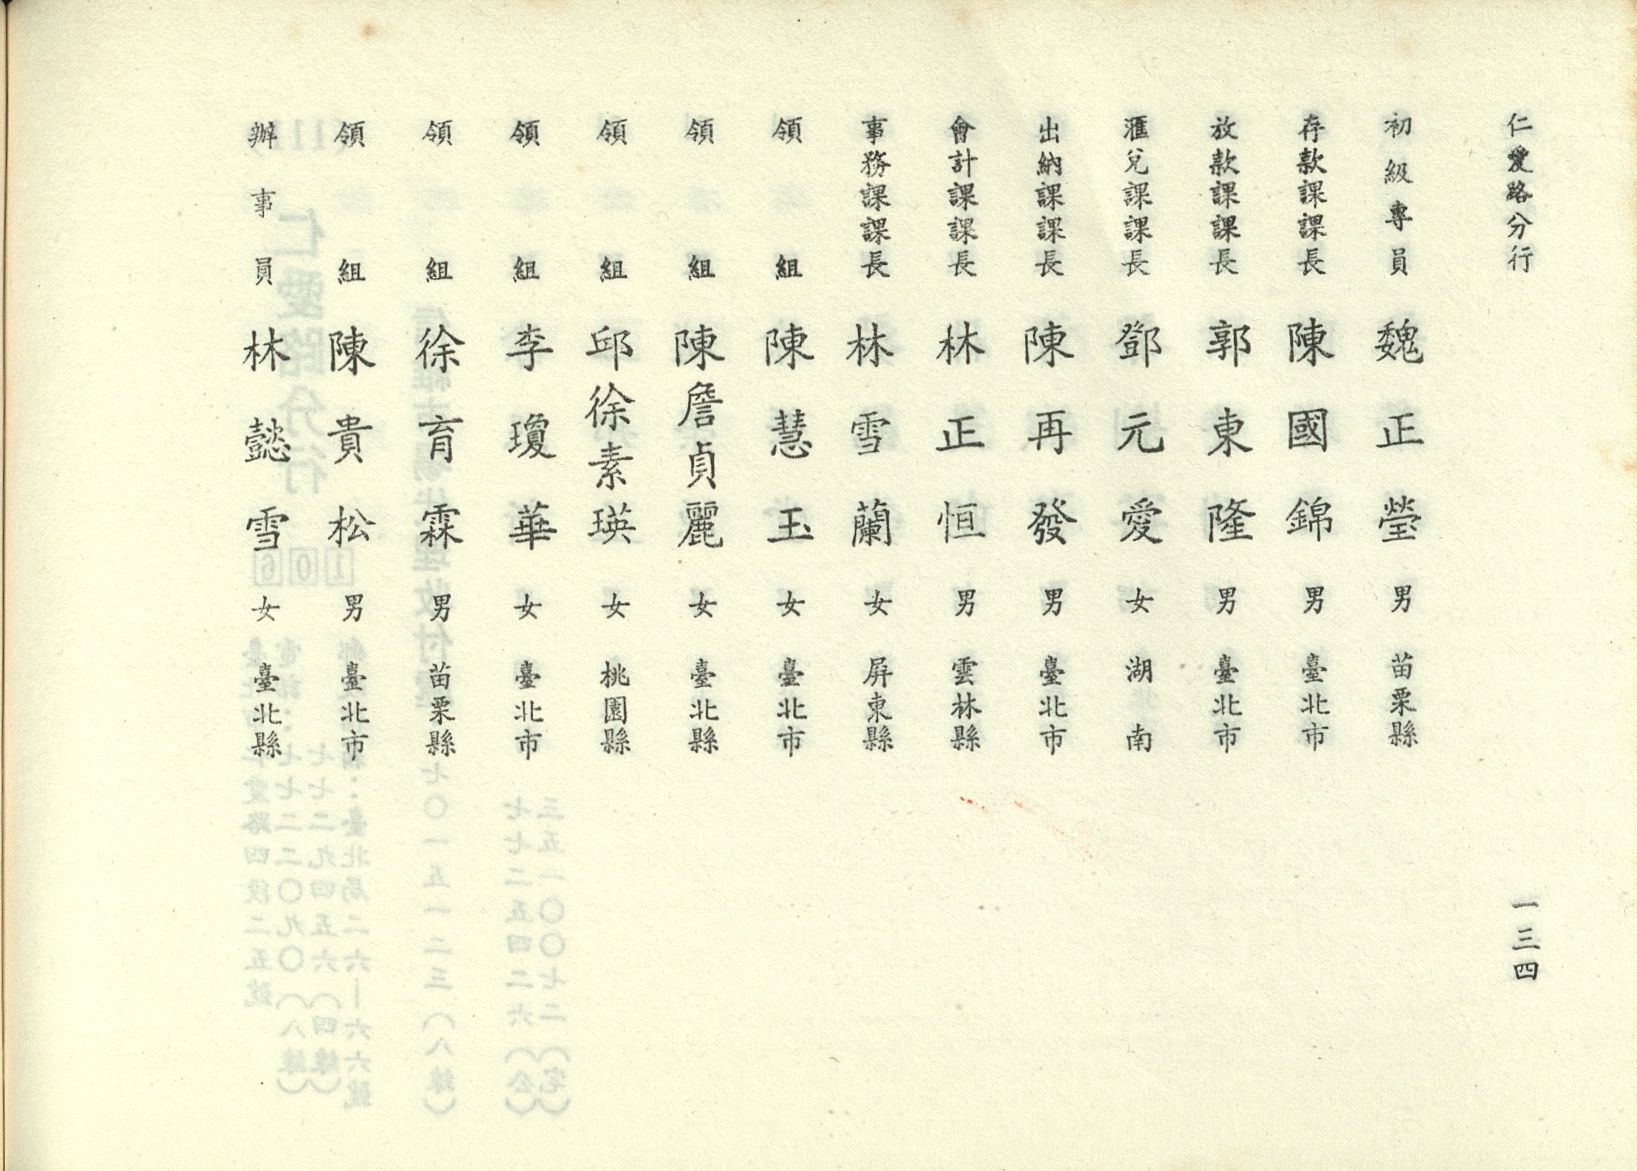 仁愛路分行
一三四
初級專員 魏正瑩 男 苗栗縣
存款課課長 陳國錦 男 臺北市
放款課課長 郭東隆 男 臺北市
滙兌課課長 鄧元愛 女 湖南
出納課課長 陳再發 男 臺北市
會計課課長 林正恒 男 雲林縣
事務課課長 林雪蘭 女 屏東縣
領組 陳慧玉 女 臺北市
領組 陳詹貞麗 女 臺北縣
領組 邱徐素瑛 女 桃園縣
領組 李瓊華 女 臺北市
領組 徐育霖 男 苗栗縣
領組 陳貴松 男 臺北市
辦事員 林懿雪 女 臺北縣